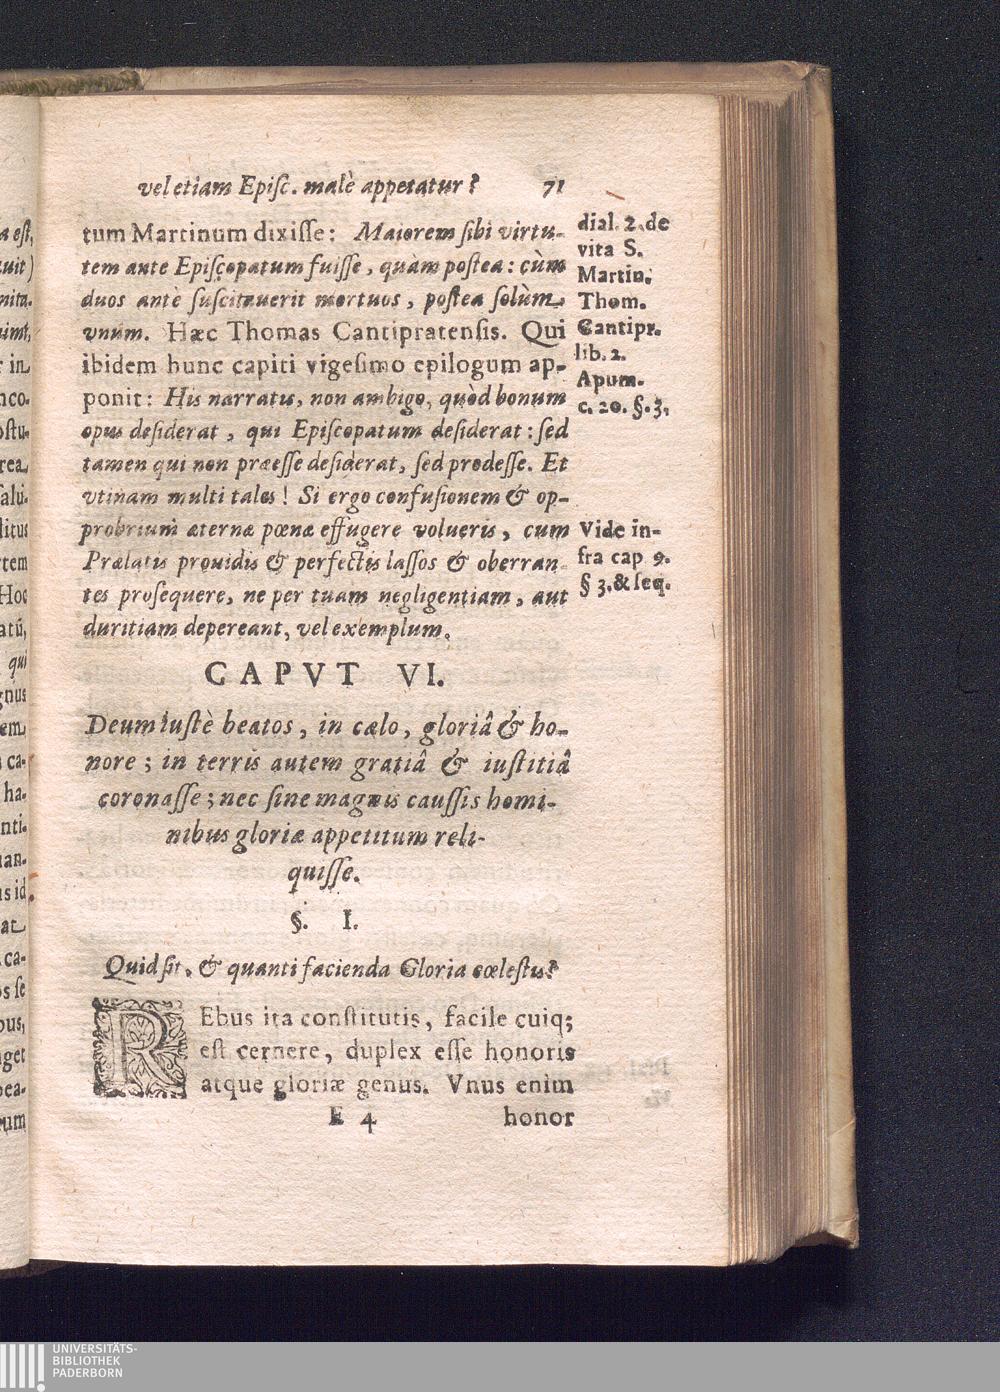 vel etiam Episc. malè appetatur? 71
tum Martinum dixisse: Maiorem sibi virtu-
tem ante Episcopatum fuisse, quàm postea: cùm
duos antè suscitauerit mortuos, postea solùm
vnum. Hæc Thomas Cantipratensis. Qui
ibidem hunc capiti vigesimo epilogum ap-
ponit: His narratis, non ambigo, quòd bonum
opus desiderat, qui Episcopatum desiderat: sed
tamen qui non præesse desiderat, sed prodesse. Et
vtinam multi tales! Si ergo confusionem & op-
probrium æternæ pœnæ effugere volueris, cum
Prælatis prouidis & perfectis lassos & oberran-
tes prosequere, ne per tuam negligentiam, aut
duritiam depereant, vel exemplum.
dial. 2. de
vita S.
Martin.
Thom.
Cantipr.
lib. 2.
Apum.
c. 20. §. 3.
Vide in-
fra cap 9.
§ 3. & seq.
CAPVT VI.
Deum iustè beatos, in cælo, gloriâ & ho-
nore; in terris autem gratiâ & iustitiâ
coronasse; nec sine magnis caussis homi-
nibus gloriæ appetitum reli-
quisse.
§. I.
Quid sit, & quanti facienda Gloria cœlestis?
REbus ita constitutis, facile cuiq;
est cernere, duplex esse honoris
atque gloriæ genus. Vnus enim
E 4 honor
UNIVERSITÄTS-
BIBLIOTHEK
PADERBORN